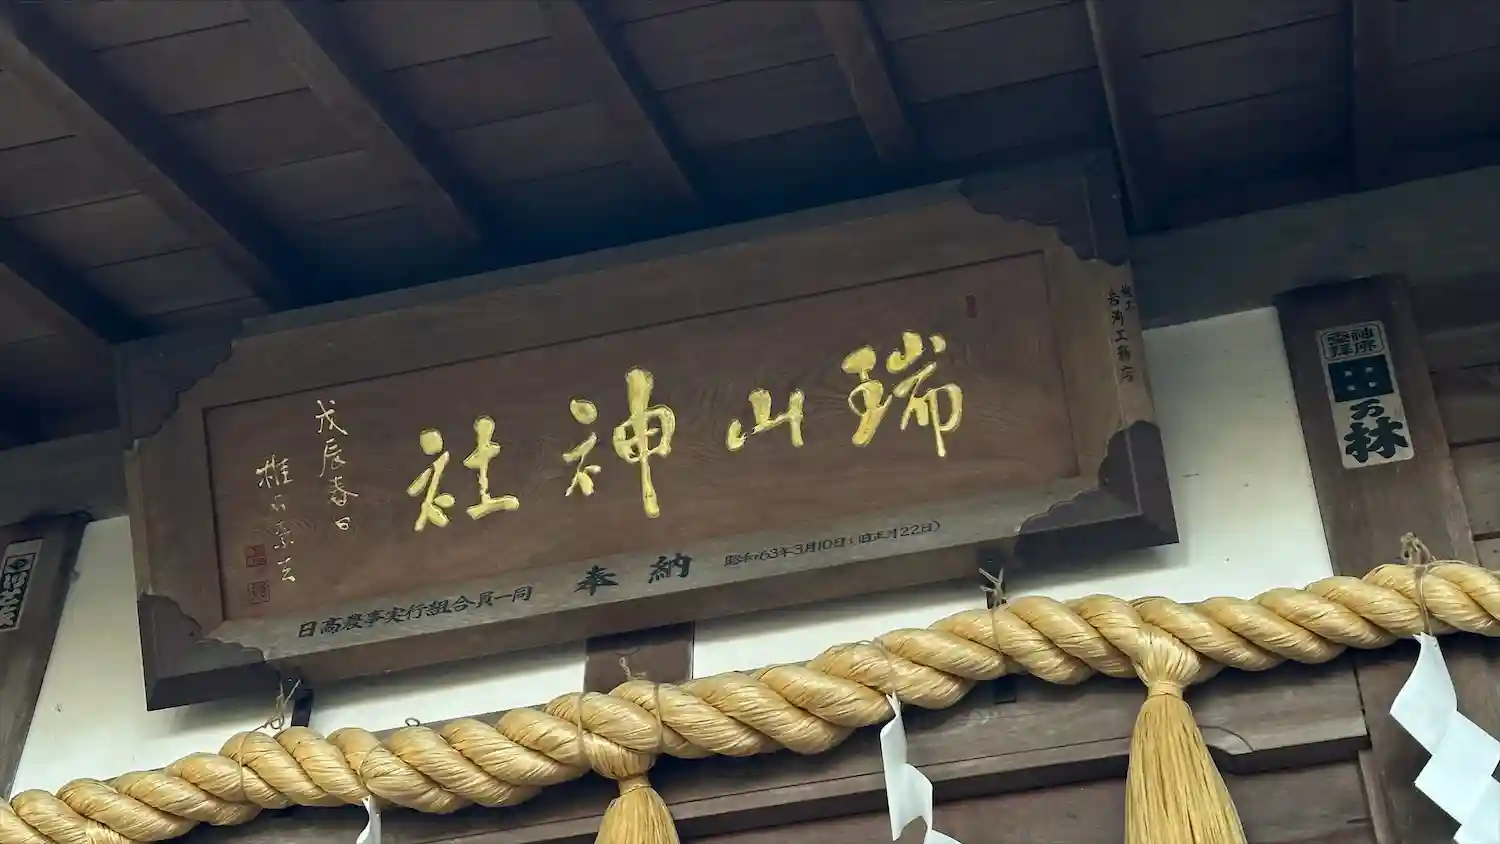 瑞山神社
戊辰春日
奉納
昭和63年3月10日(旧正月22日)
日高農事実行組合員一同
施工
工務店
神原
参拝
田万林